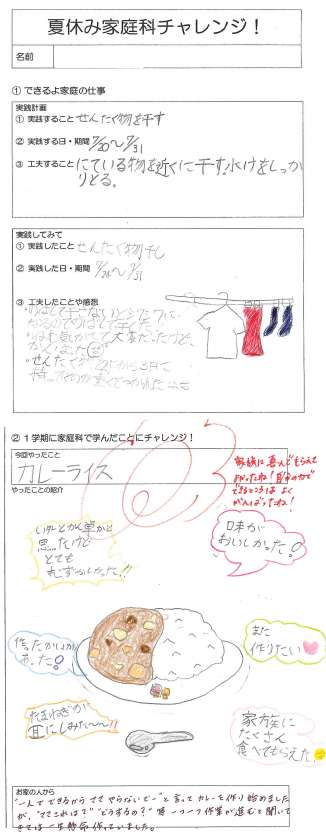 夏休み家庭科チャレンジ!
名前
① できるよ家庭の仕事
実践計画
① 実践すること せんたく物を干す
② 実践する日・期間 7/20〜7/31
③ 工夫すること にている物を近くに干す。水けをしっか
りとる。
実践してみて
① 実践したこと せんたく物干し
② 実践した日・期間 7/24〜7/31
③ 工夫したことや感想
② 1学期に家庭科で学んだことにチャレンジ!
今回やったこと
カレーライス
家族に喜んでもらえて
よかったね!自分の力で
できるところは よく
がんばったね!
やったことの紹介
いがいとかん単かと
思ったけど
とても
むずかしかった!!
味が
おいしかった!
作ったかいが
あった!
また
作りたい
たまねぎが
目にしみた〜〜!!
家族に
たくさん
食べてもらえた
お家の人から
"一人でできるから ママ やらないでー"と言ってカレーを作り始めました
が、"ママこれは?" "どうするの?" 等 一つ一つ作業が進むと聞いて
きては一生懸命 作っていました。